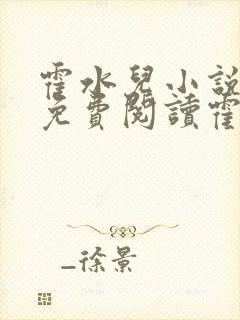 霍水兒小說
免費閱讀霍
_徐景